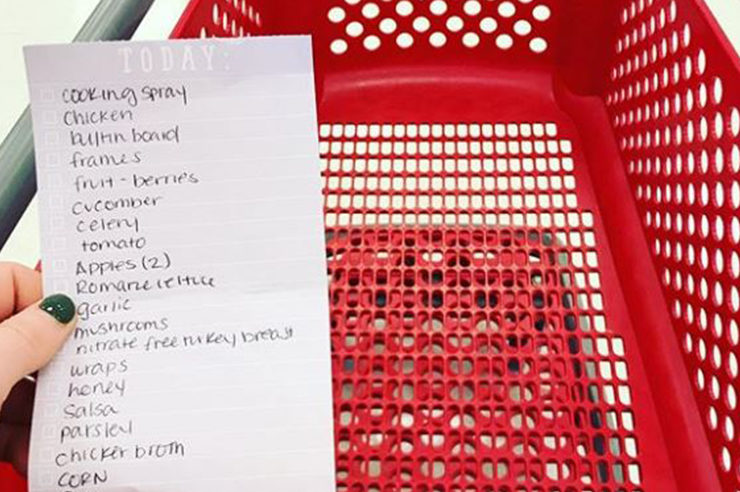 TODAY:
cooking spray
Chicken
bulltin board
frames
fruit - berries
cucomber
celery
tomato
Apples (2)
Romane lettuce
garlic
mushrooms
nitrate free turkey breast
wraps
honey
salsa
parsley
chicken broth
CORN